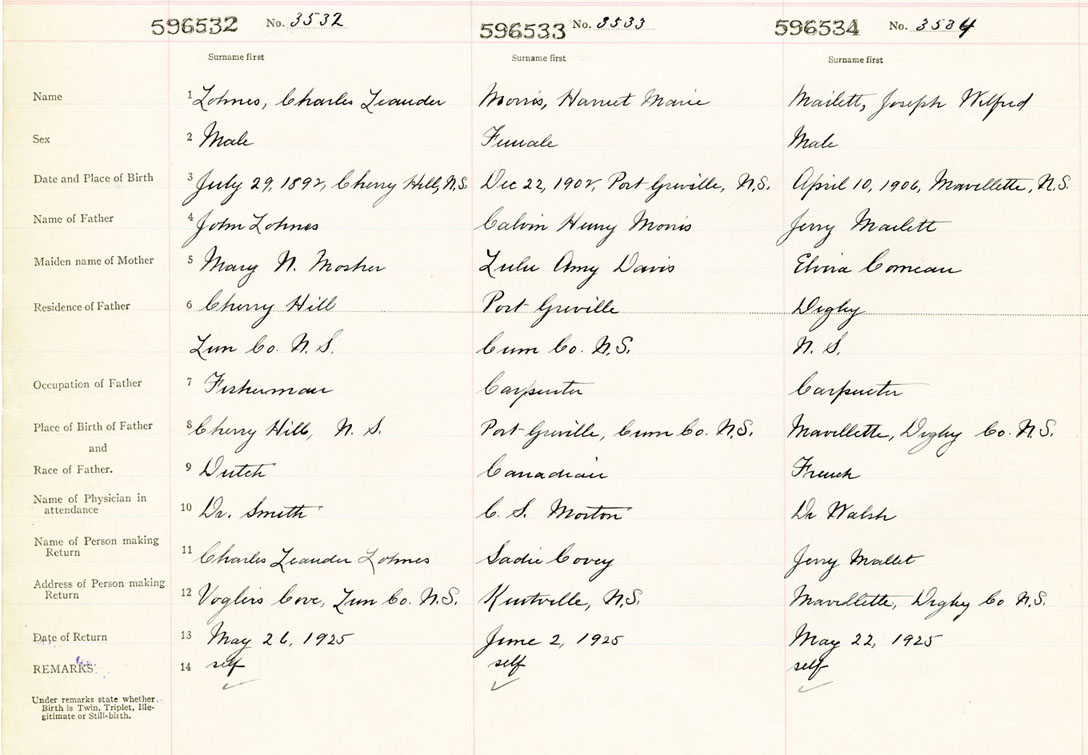 596532 No. 3532 596533 No. 3533 596534 No. 3534
Surname first Surname first Surname first
Name 1 Lohnes, Charles Leander Morris, Harriet Marie Mailett, Joseph Wilfred
Sex 2 Male Female Male
Date and Place of Birth 3 July 29, 1892, Cherry Hill, N.S. Dec 22, 1902, Port Greville, N.S. April 10, 1906, Mavillette, N.S.
Name of Father 4 John Lohnes Calvin Henry Morris Jerry Mailett
Maiden name of Mother 5 Mary N. Mosher Lulu Amy Davis Elvira Comeau
Residence of Father 6 Cherry Hill Port Greville Digby
Lun Co. N.S. Cum Co. N.S. N.S.
Occupation of Father 7 Fisherman Carpenter Carpenter
Place of Birth of Father 8 Cherry Hill, N.S. Port Greville, Cum Co. N.S. Mavillette, Digby Co. N.S.
and
Race of Father. 9 Dutch Canadian French
Name of Physician in
attendance 10 Dr. Smith C. S. Morton Dr Walsh
Name of Person making
Return 11 Charles Leander Lohnes Sadie Covey Jerry Mallet
Address of Person making
Return 12 Voglers Cove, Lun Co. N.S. Kentville, N.S. Mavillette, Digby Co N.S.
Date of Return 13 May 26, 1925 June 2, 1925 May 22, 1925
REMARKS 14 self self self
Under remarks state whether
Birth is Twin, Triplet, Ille-
gitimate or Still-birth.